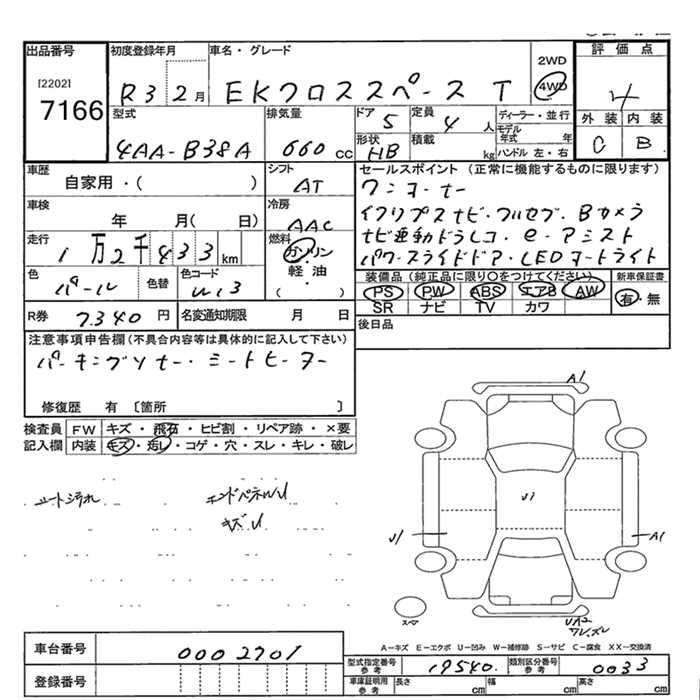 出品番号
[2202]
7166
初度登録年月
R3 2月
車名・グレード
EKクロススペース T
2WD
4WD
評価点
4
外装 内装
C B
型式
4AA-B38A
排気量
660 cc
ドア 5
定員 4 人
形状 HB
積載 kg
ディーラー・並行
モデル年式 年
ハンドル 左・右
車歴
自家用・( )
シフト
AT
車検
年 月( 日)
冷房
AAC
走行
1万2千433km
燃料
ガソリン
軽・油
( )
色
パール
色替
色コード
W13
R券 7,340円
名変通知期限 月 日
セールスポイント (正常に機能するものに限ります)
ワンオーナー
ナビ・フルセグ・Bカメラ
ナビ連動ドラレコ・e-アシスト
パワースライドドア・LEDヘッドライト
装備品 (純正品に限り○をつけてください)
PS PW ABS エアB AW
SR ナビ TV カワ
新車保証書
有・無
後日品
注意事項申告欄(不具合内容等は具体的に記入して下さい)
パーキングセンサー・シートヒーター
修復歴 有 〔箇所 〕
検査員 FW キズ・飛石・ヒビ割・リペア跡・×要
記入欄 内装 キズ・汚レ・コゲ・穴・スレ・キレ・破レ
シート汚れ
エンドパネルU
キズU
A1
U1
U1
A1
スペア
UA2
ワレ,ズレ
A-キズ E-エクボ U-凹み W-補修跡 S-サビ C-腐食 XX-交換済
車台番号 0002701
登録番号
型式指定番号 参考 19540
類別区分番号 参考 0033
車庫証明用 参考 長さ cm 幅 cm 高さ cm